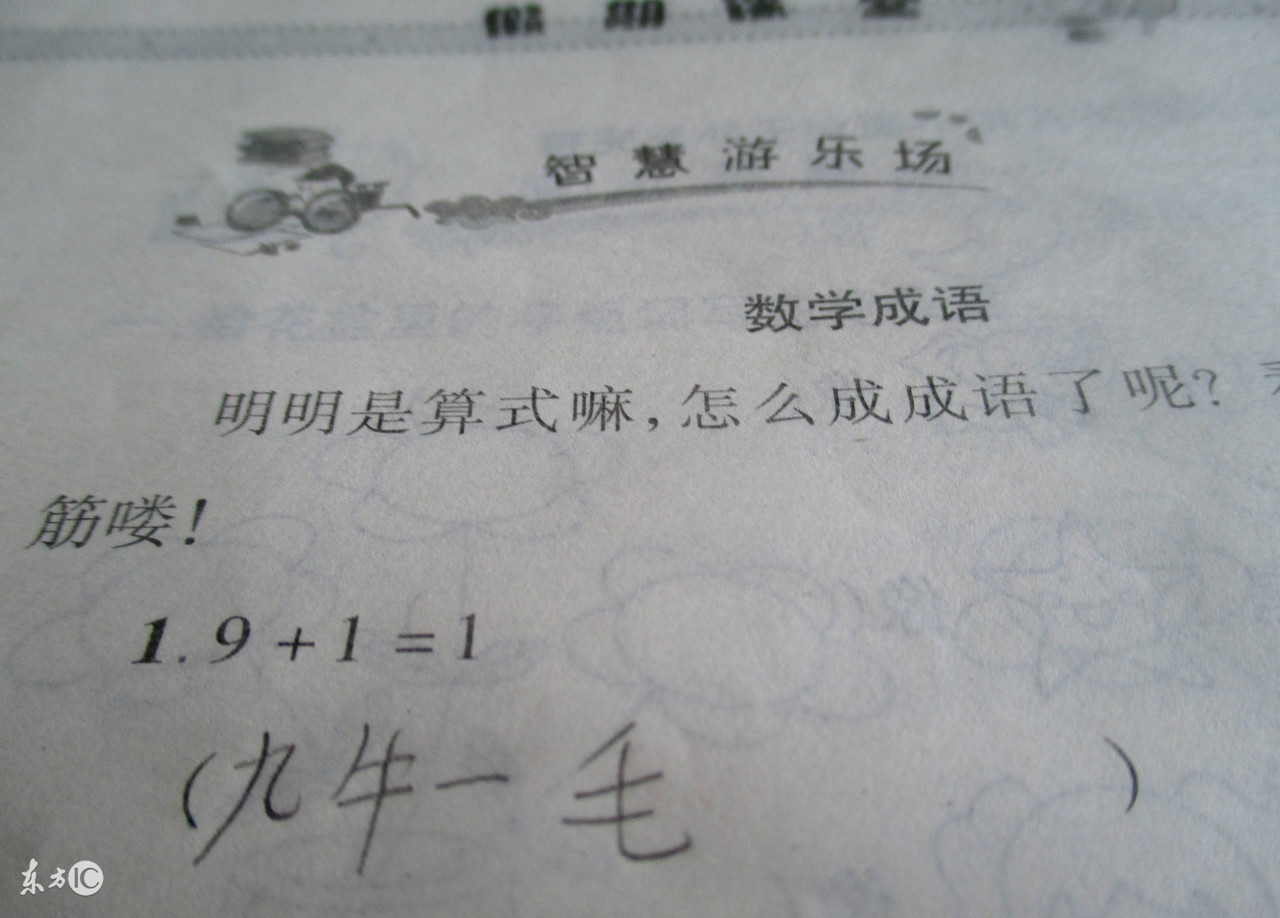 智慧游乐场
数学成语
明明是算式嘛,怎么成成语了呢?
筋喽!
1.9+1=1
(九牛一毛)
东方IC